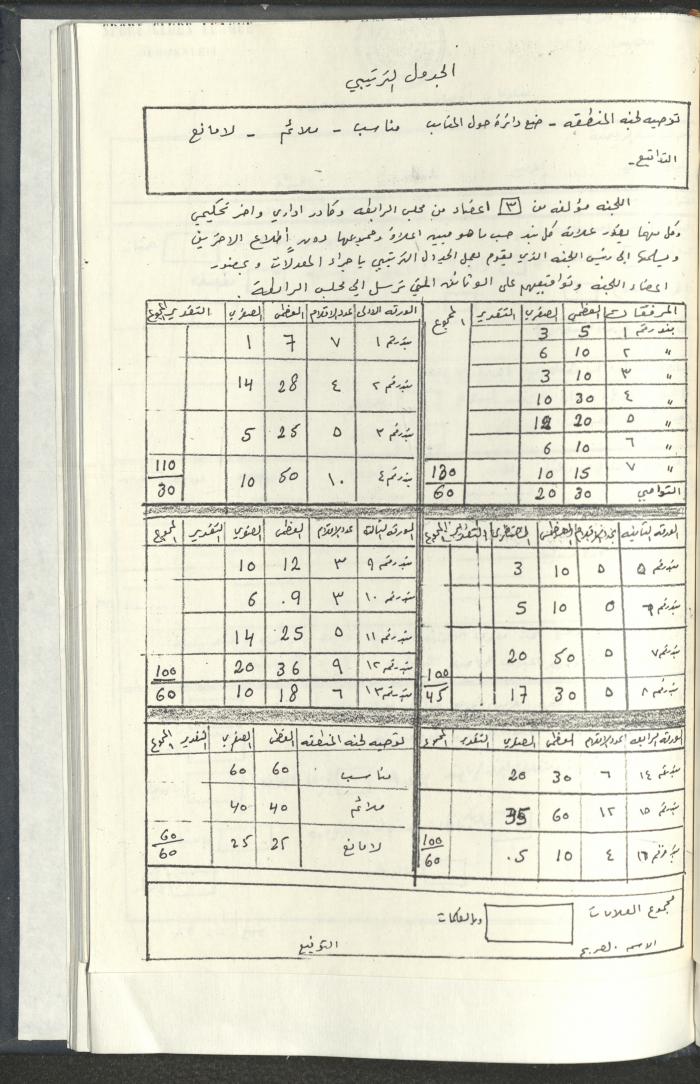 الجدول الترتيبي
توصيه لجنه المنطقه - ضع دائرة حول المناسب مناسب - ملائم - لا مانع
التواقيع -
اللجنه مؤلفه من ٣ اعضاء من مجلس الرابطه وكادر اداري واخر تحكيمي
وكل منهما يقرر علامة كل بند حسب ما هو مبين اعلاه وجميعها دون إطلاع الاخرين
ويسلمها الى رئيس اللجنه الذي يقوم بعمل الجدول الترتيبي باجراء المعدلات وبحضور
اعضاء اللجنه وتواقيعهم على الوثائق التي ترسل الى مجلس الرابطة
المرفقات العظمى الصغرى التقدير المجموع
بند رقم ١ 5 3
" ٢ 10 6
" ٣ 10 3
" ٤ 30 10
" ٥ 20 12
" ٦ 10 6
" ٧ 15 10 130
30 20 60
الورقه الاولى عدد الارقام العظمى الصغرى التقدير المجموع
بند رقم ١ ٧ 7 1
بند رقم ٢ ٤ 28 14
بند رقم ٣ ٥ 25 5
بند رقم ٤ ١٠ 50 10 110
30
الورقه الثانيه عدد الارقام العظمى الصغرى التقدير المجموع
بند رقم ٥ ٥ 10 3
بند رقم ٦ ٥ 10 5
بند رقم ٧ ٥ 50 20
بند رقم ٨ ٥ 30 17 100
45
الورقه الثالثة عدد الارقام العظمى الصغرى التقدير المجموع
بند رقم ٩ ٣ 12 10
بند رقم ١٠ ٣ 9. 6
بند رقم ١١ ٥ 25 14
بند رقم ١٢ ٩ 36 20 100
بند رقم ١٣ ٦ 18 10 60
الورقه الرابعه عدد الارقام العظمى الصغرى التقدير المجموع
بند رقم ١٤ ٦ 30 20
بند رقم ١٥ ١٢ 60 35
بند رقم ١٦ ٤ 10 5. 100
60
توصيه لجنه المنطقه العظمى الصغرى التقدير المجموع
مناسب 60 60
ملائم 40 40
لا مانع 25 25 60
60
مجموع العلامات وبالكلمات
الاسم الصريح التوقيع